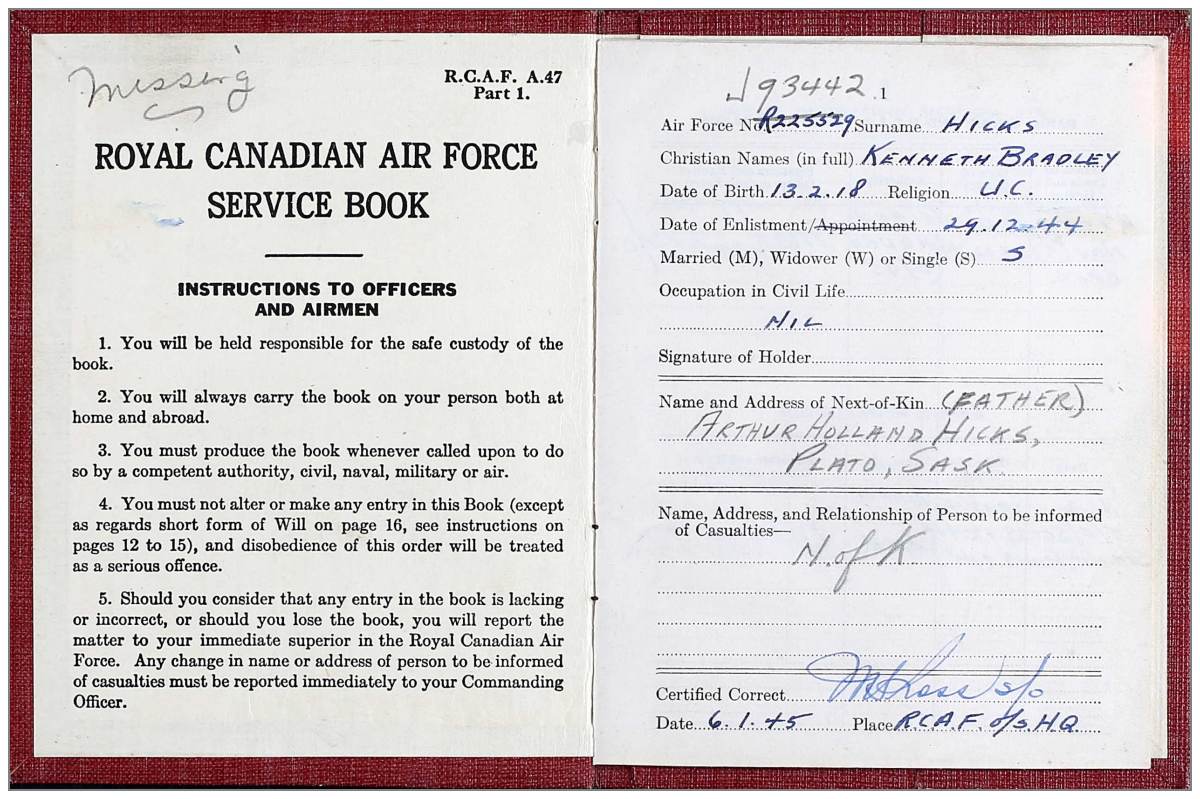 Missing
R.C.A.F. A.47
Part 1.
ROYAL CANADIAN AIR FORCE
SERVICE BOOK
INSTRUCTIONS TO OFFICERS
AND AIRMEN
1. You will be held responsible for the safe custody of the
book.
2. You will always carry the book on your person both at
home and abroad.
3. You must produce the book whenever called upon to do
so by a competent authority, civil, naval, military or air.
4. You must not alter or make any entry in this Book (except
as regards short form of Will on page 16, see instructions on
pages 12 to 15), and disobedience of this order will be treated
as a serious offence.
5. Should you consider that any entry in the book is lacking
or incorrect, or should you lose the book, you will report the
matter to your immediate superior in the Royal Canadian Air
Force. Any change in name or address of person to be informed
of casualties must be reported immediately to your Commanding
Officer.
J93442 1
Air Force No. R225529 Surname HICKS
Christian Names (in full) KENNETH BRADLEY
Date of Birth 13.2.18 Religion U.C.
Date of Enlistment/Appointment 29.12.44
Married (M), Widower (W) or Single (S) S
Occupation in Civil Life
NIL
Signature of Holder
Name and Address of Next-of-Kin (FATHER)
ARTHUR HOLLAND HICKS,
PLATO, SASK
Name, Address, and Relationship of Person to be informed
of Casualties—
N. of K
Certified Correct s/o
Date 6.1.45 Place R.C.A.F. o/s. H.Q.